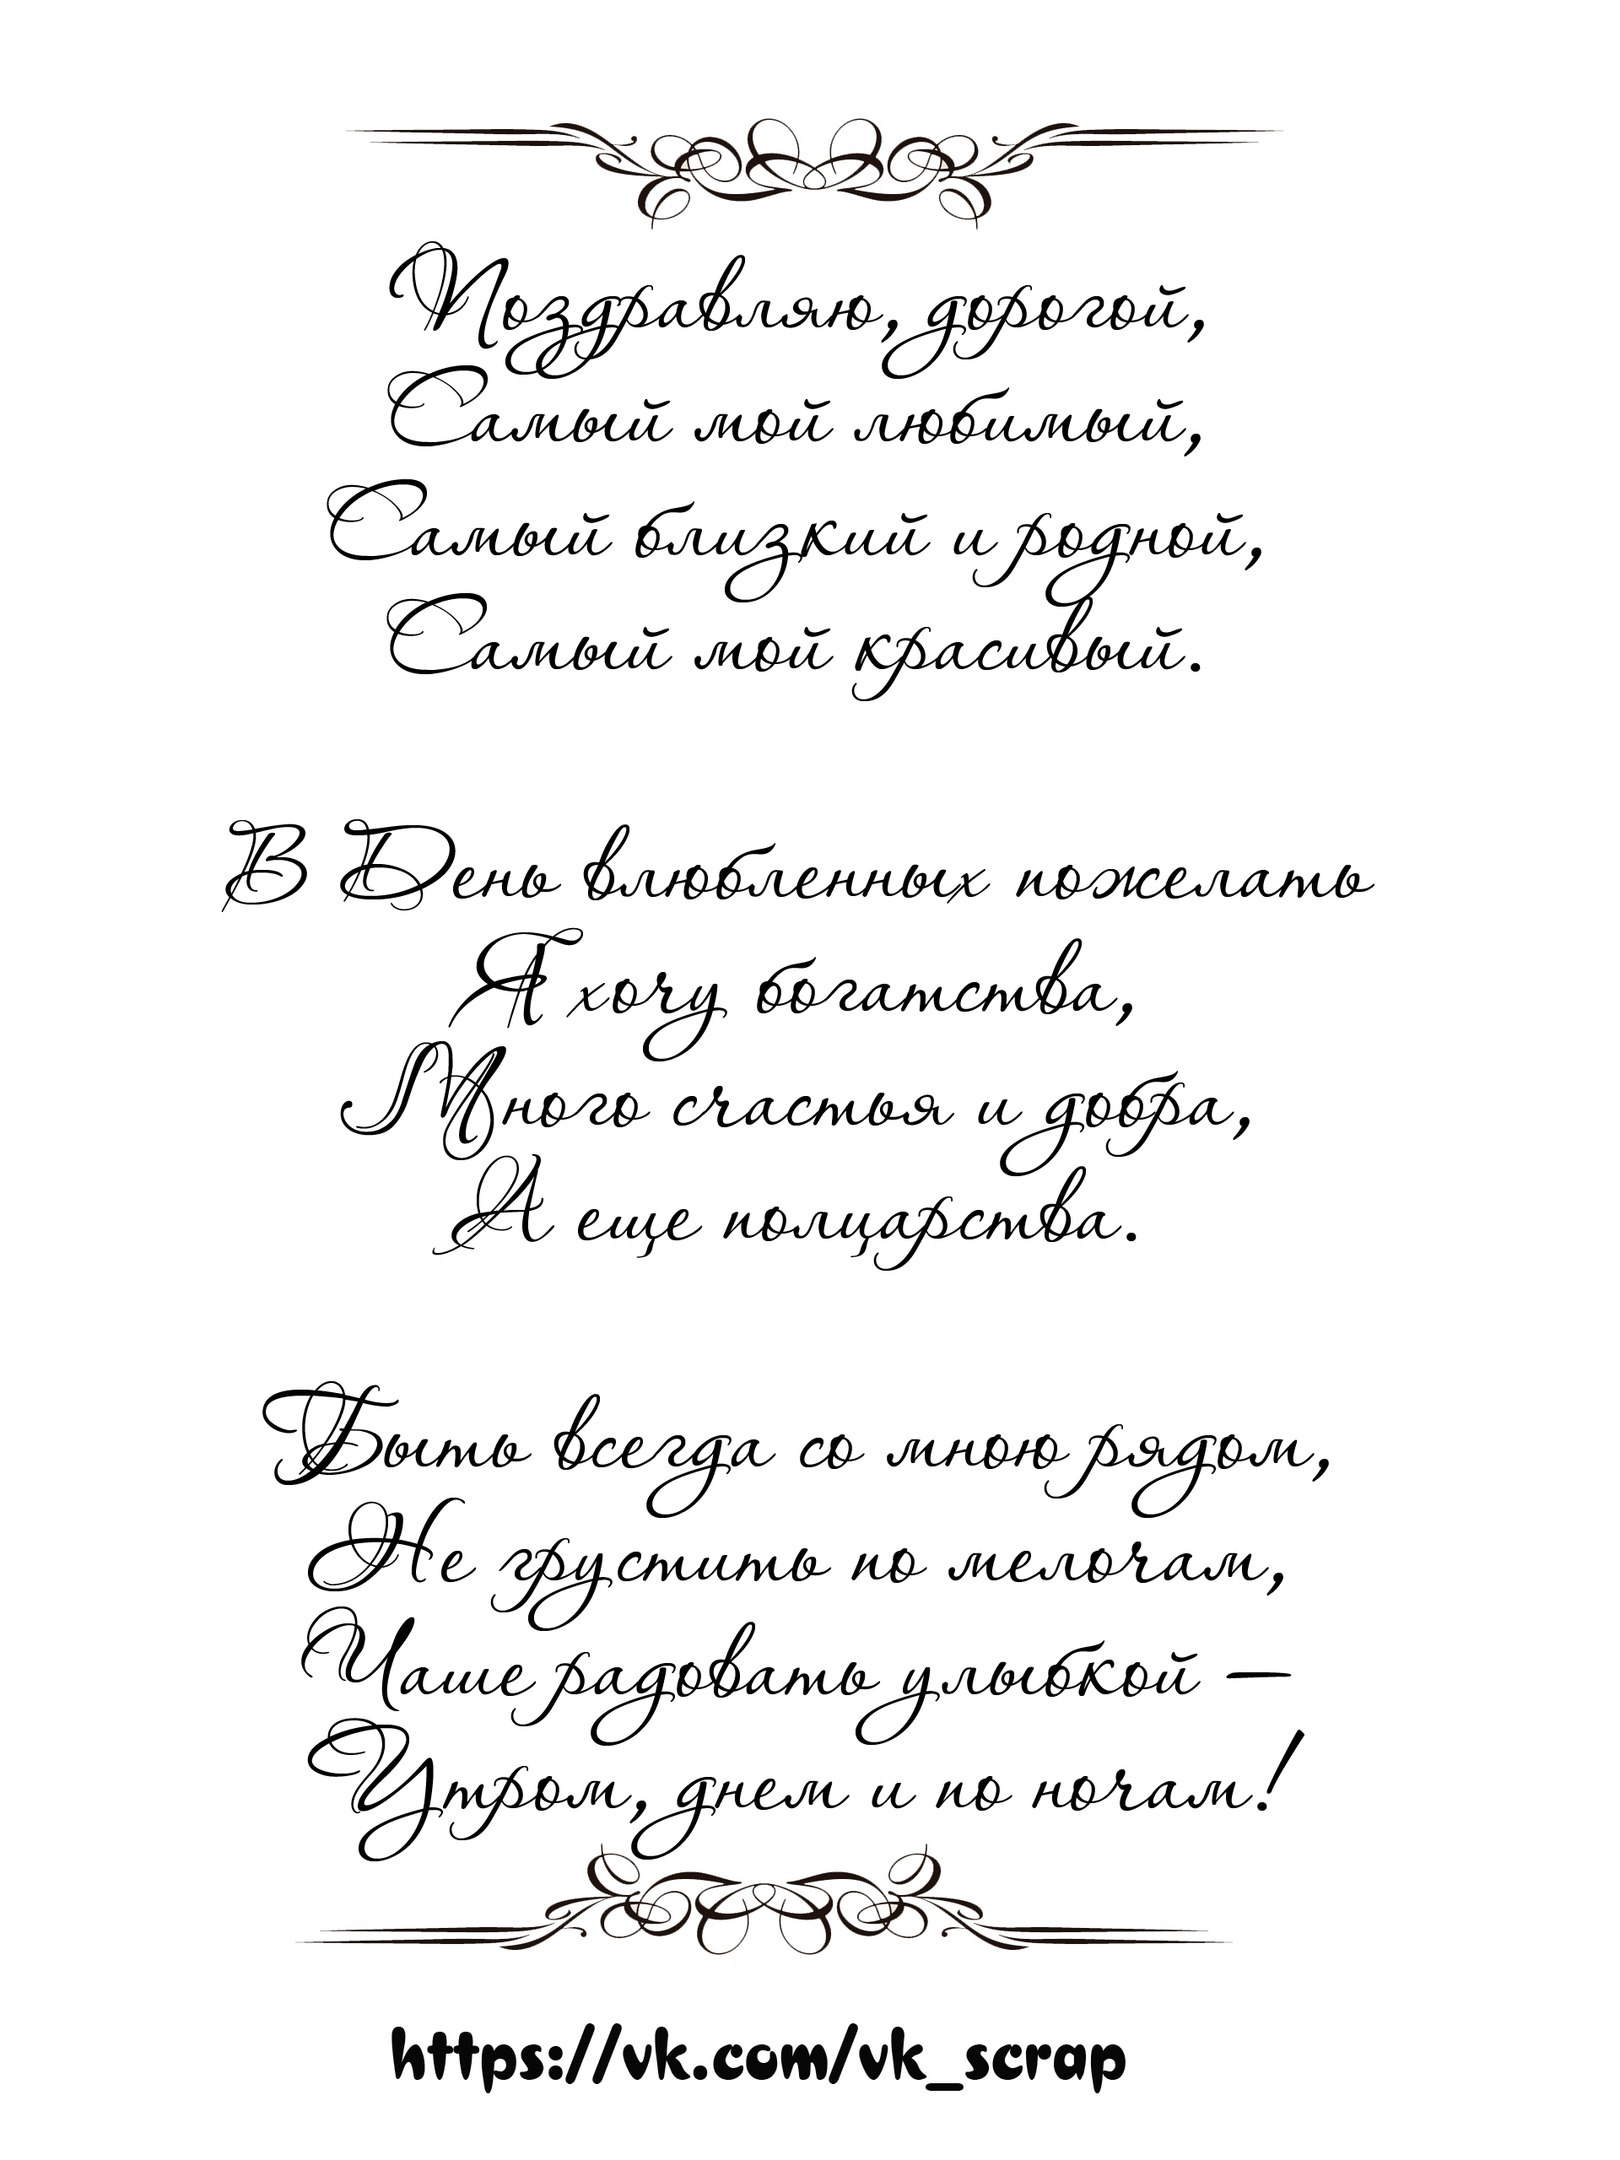 Поздравляю, дорогой,
Самый мой любимый,
Самый близкий и родной,
Самый мой красивый.
В День влюбленных пожелать
Я хочу богатства,
Много счастья и добра,
А еще полцарства.
Быть всегда со мною рядом,
Не грустить по мелочам,
Чаше радовать улыбкой —
Утром, днем и по ночам!
https://vk.com/vk_scrap